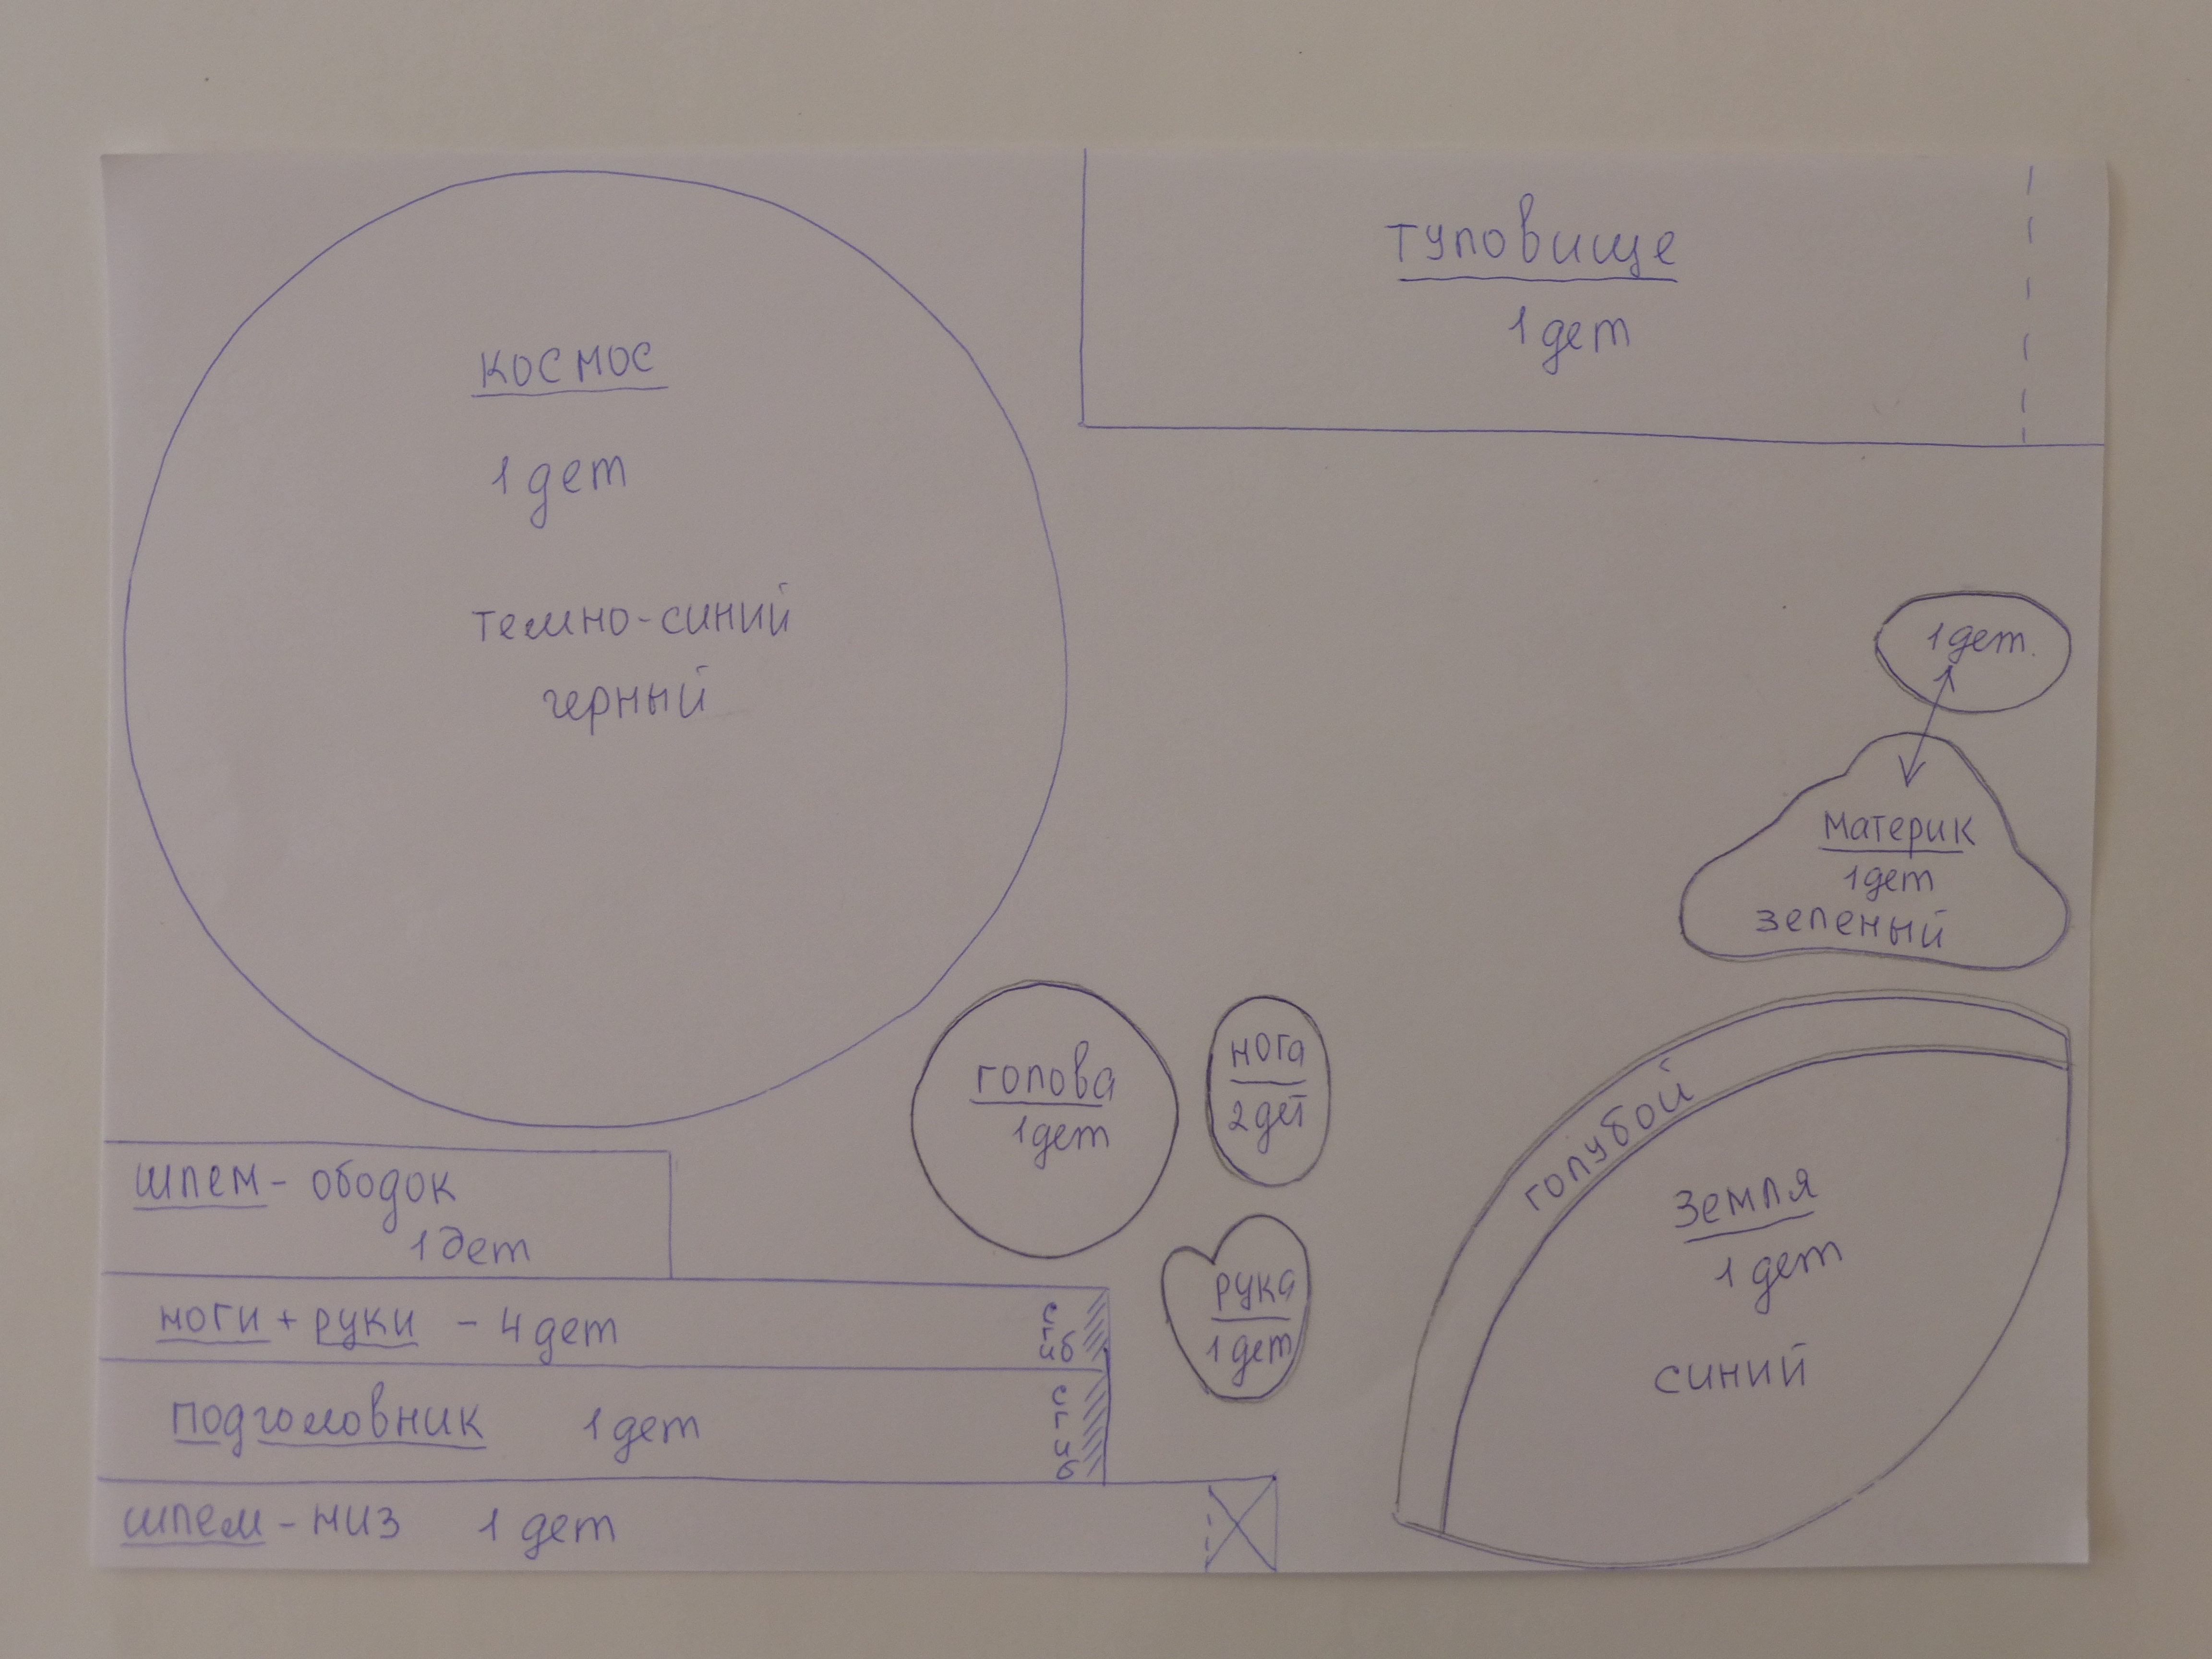 космос
1 дет
темно-синий
черный
туловище
1 дет
1 дет.
материк
1 дет
зеленый
голова
1 дет
нога
2 дет
рука
1 дет
голубой
Земля
1 дет
синий
шлем - ободок
1 дет
ноги + руки - 4 дет
сгиб
подголовник 1 дет
сгиб
шлем - низ 1 дет